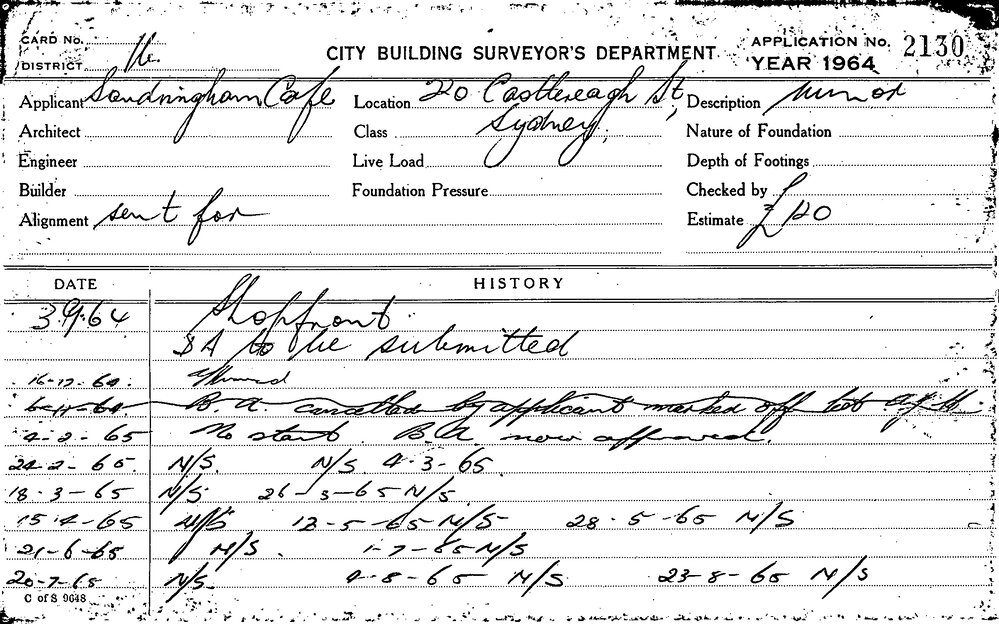 CARD No.
DISTRICT
CITY BUILDING SURVEYOR'S DEPARTMENT.
APPLICATION No. 2130
YEAR 1964
Applicant Sandringham Cafe
Location 20 Castlereagh St, Sydney.
Description Minor
Architect
Class
Nature of Foundation
Engineer
Live Load
Depth of Footings
Builder
Foundation Pressure
Checked by
Alignment sent for
Estimate £120
DATE HISTORY
3.9.64 Shopfront
BA to be submitted
16-12-64
B.A. cancelled by applicant marked off
4-2-65 No start. B.A. now approved.
22-2-65. N/S. N/S. 4-3-65.
18-3-65 N/S. 26-3-65 N/S.
15-4-65 N/S 12-5-65 N/S 28-5-65 N/S
21-6-65 N/S. 1-7-65 N/S
20-7-65 N/S. 4-8-65 N/S 23-8-65 N/S
C of S 9648